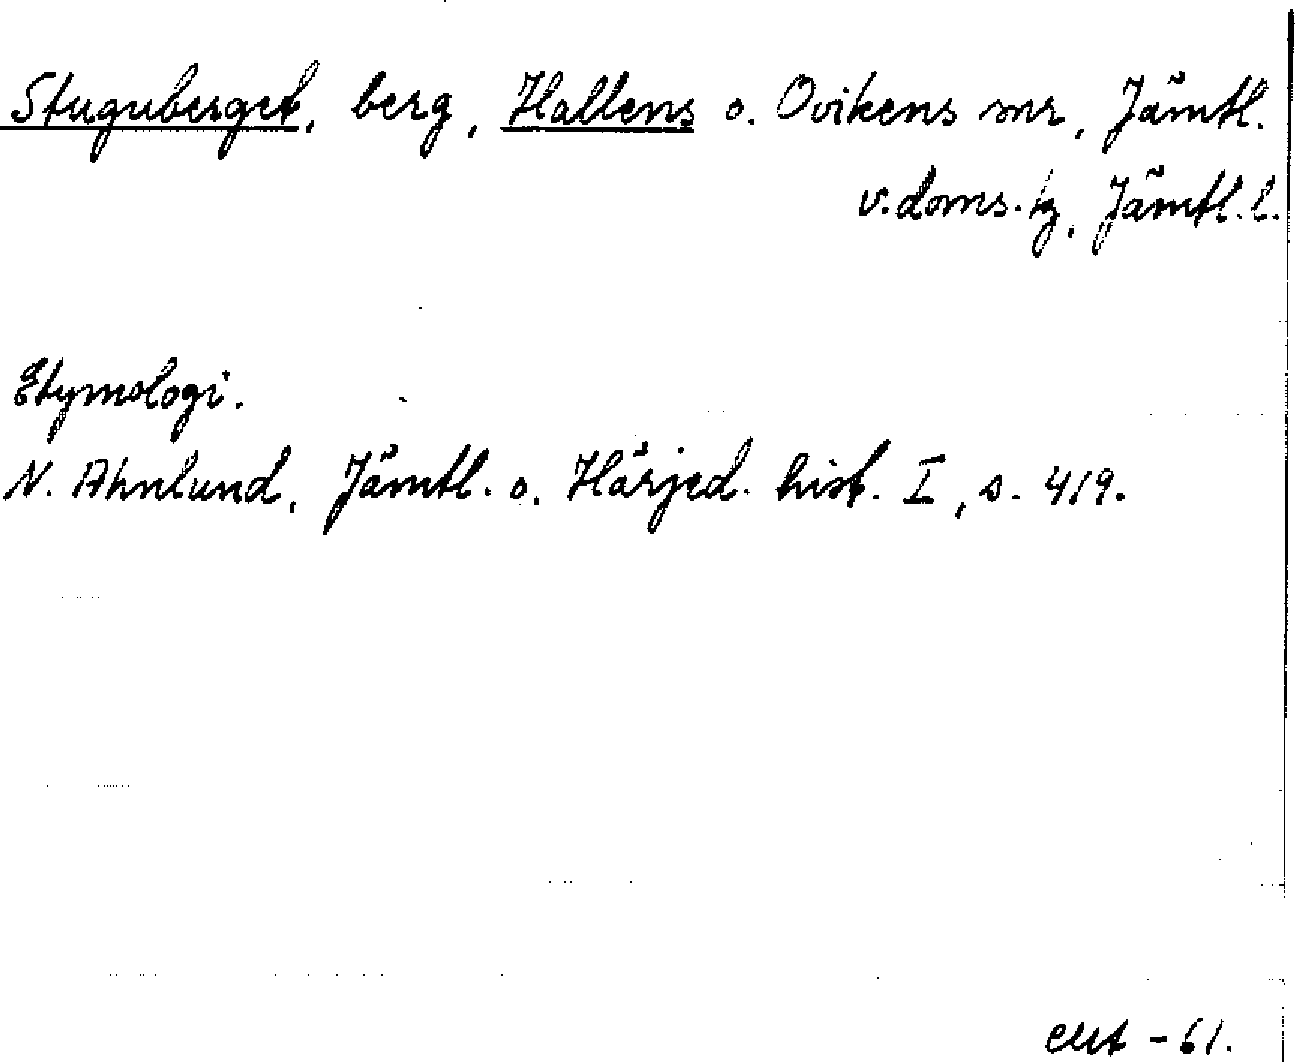 Stuguberget, berg, Hallens o. Ovikens snr, Jämtl.
v. doms. tg, Jämtl. l.
Etymologi.
N. Ahnlund, Jämtl. o. Härjed. hist. I, s. 419.
-61.